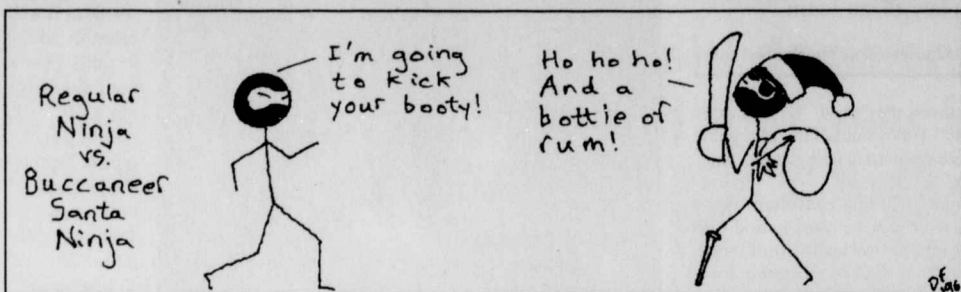 Regular
Ninja
vs.
Buccaneer
Santa
Ninja
I'm going
to kick
your booty!
Ho ho ho!
And a
bottie of
rum!